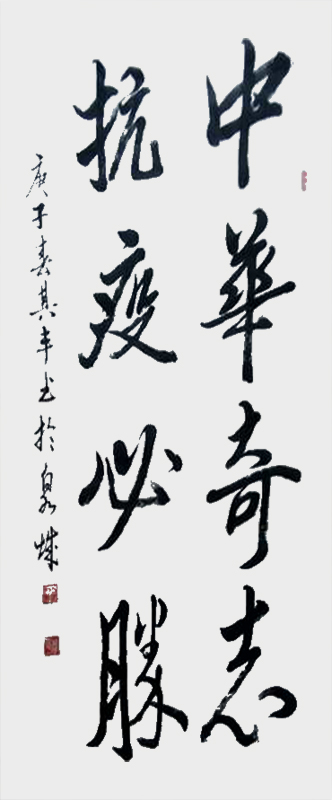 中華奇志
抗疫必勝
庚子春其丰书於泉城